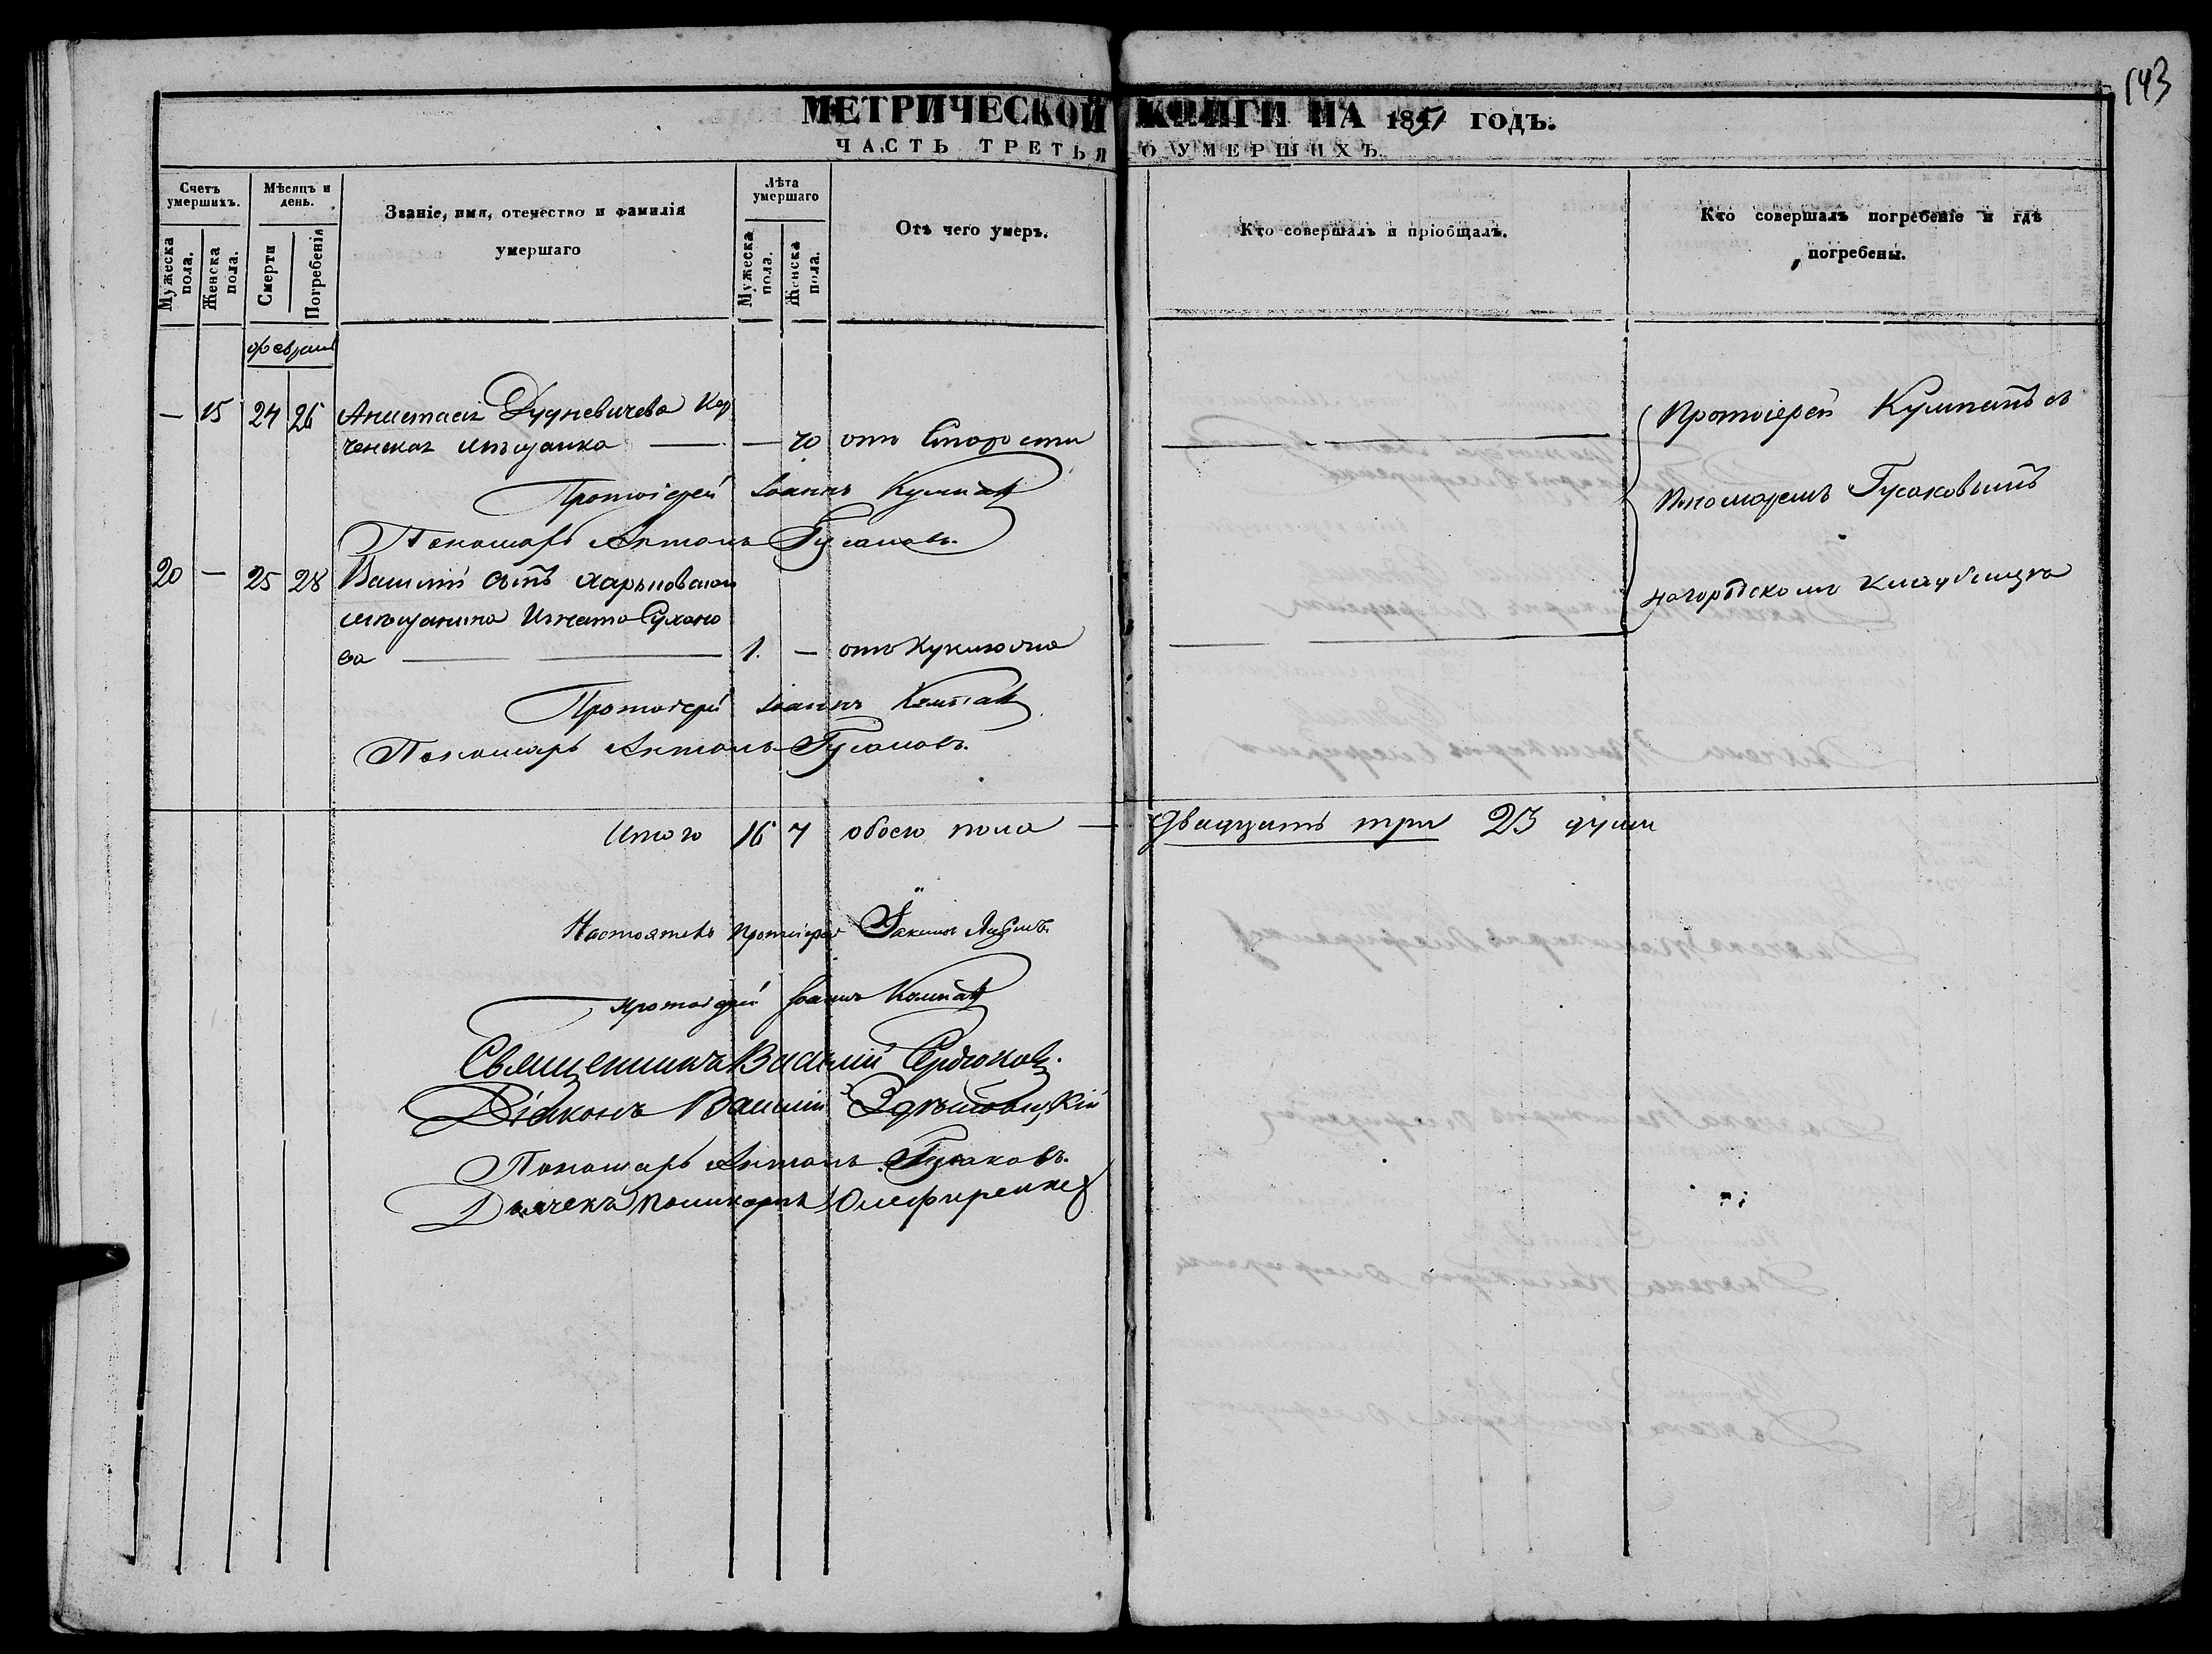 143
МЕТРИЧЕСКОЙ КНИГИ НА 1851 ГОДЪ.
ЧАСТЬ ТРЕТЬЯ О УМЕРШИХЪ
Счетъ умершихъ.
Мѣсяцъ и день.
Званіе, имя, отечество и фамилія умершаго
Лѣта умершаго
Отъ чего умеръ.
Кто совершалъ и пріобщалъ.
Кто совершалъ погребеніе и гдѣ погребены.
Мужеска пола.
Женска пола.
Смерти
Погребенія
Мужеска пола.
Женска пола.
февраль
— 15 24 26 Анастасія Дудневичева Кер
ченская мѣщанка — — 70 отъ Старости
Протоіерей Іоаннъ Кумпанъ
Пономарь Антонъ Гусаковъ.
20 — 25 28 Василій сынъ харьковскаго
мѣщанина Игната Сухано
ва — 1. — отъ Куклюша
Протоіерей Іоаннъ Кумпанъ
Пономарь Антонъ Гусаковъ.
Протоіерей Кумпанъ съ
Пономаремъ Гусаковымъ
на городскомъ Кладбищѣ
Итого 16 7 обоего пола — Двадцать три 23 души
Настоятель Протоіерей
Протоіерей Іоаннъ Кумпанъ
Священникъ Василій Сердюковъ.
Діаконъ Василій
Пономарь Антонъ Гусаковъ.
Дьячекъ Поликарпъ Олефиренко